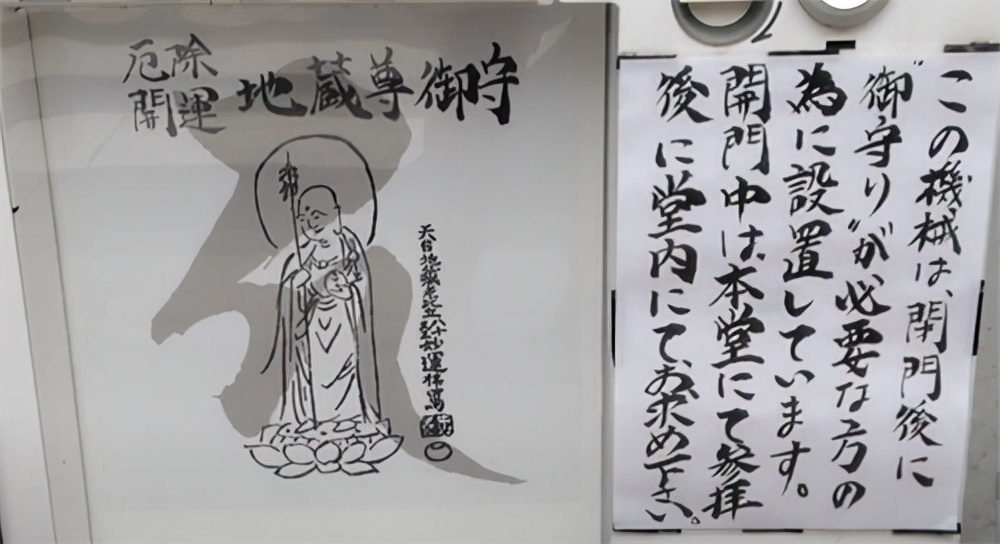 厄除
開運
地蔵尊御守
妙運拝寫
この機械は、閉門後に
"御守り"が必要な方の
為に設置しています。
開門中は、本堂にて参拝
後に堂内にて、お求め下さい。